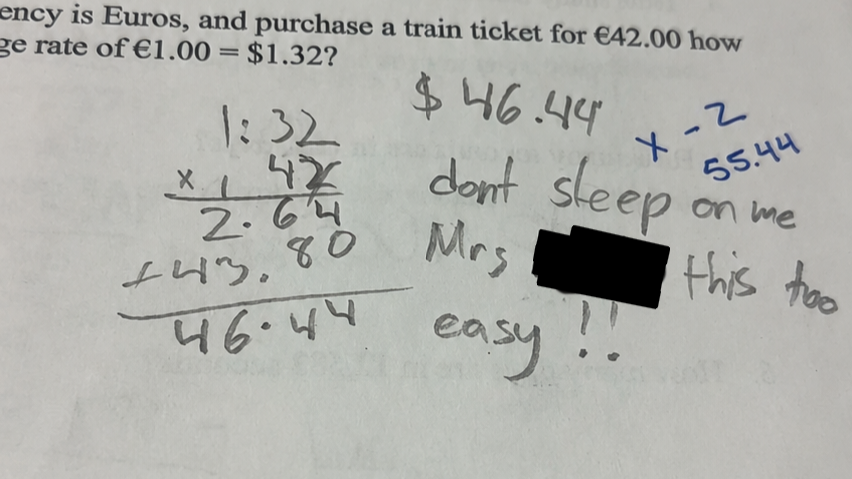 ency is Euros, and purchase a train ticket for €42.00 how
ge rate of €1.00 = $1.32?
$ 46.44
x -2
55.44
1.32
x 42
2.64
+43.80
46.44
dont sleep on me
Mrs this too
easy !!